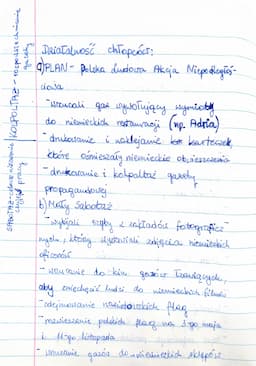 Działalność chłopców:
a) PLAN - Polska Ludowa Akcja Niepodległoś-
ciowa
- wrzucali gaz wywołujący wymioty
do niemieckich restauracji (np. Adria)
- drukowanie i naklejanie karteczek,
które ośmieszały niemieckie obwieszczenia
- drukowanie i kolportaż gazety
propagandowej
b) Mały Sabotaż
- wybijali szyby z zakładów fotograficz-
nych, które wystawiały zdjęcia niemieckich
oficerów
- wrzucanie do kin gazów łzawiących,
aby zniechęcić ludzi do niemieckich filmów
- zdejmowanie flag
- rozwieszanie polskich flag na 3-go maja
i 11-go listopada
- wrzucanie gazów do niemieckich sklepów
SABOTAŻ - celowe niszczenie czyjejś pracy
KOLPORTAŻ - rozpowszechnianie gazety